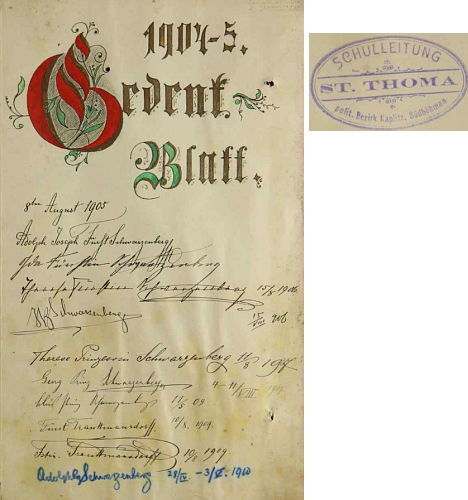 1904-5.
Gedenk-
Blatt.
8ten August 1905
Adolph Joseph Fürst Schwarzenberg
Ida Fürstin Schwarzenberg
Therese Fürstin Schwarzenberg 15/8 1906
Schwarzenberg 15/VIII 906
Therese Prinzessin Schwarzenberg 11/8 1907
Georg Prinz Schwarzenberg 4-11/VIII
Prinz Schwarzenberg 09
Trauttmansdorff 10/8. 1909.
Trauttmansdorff 10/8 1909.
Adolph Schwarzenberg 28/IV - 3/V. 1910
SCHULLEITUNG
ST. THOMA
polit. Bezirk Kaplitz, Südböhmen